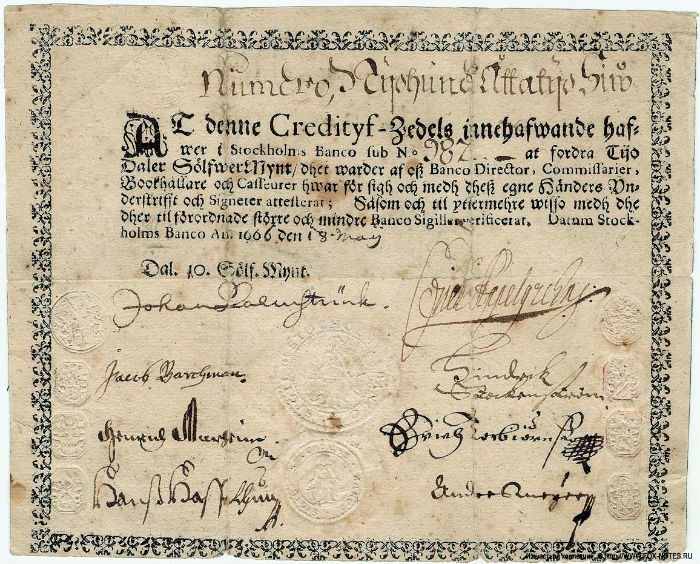 Numero, Nijohund Attatijo Twå
AT denne Credityf-Zedels innehafwande haf-
wer i Stockholms Banco sub N° 982. at fordra Tijo
Daler Sölfwer Mynt/ dhet warder af oß Banco Director, Commissarier,
Bookhållare och Casseurer hwar för sigh och medh dheß egne Händers Vn-
derskrifft och Signeter attesterat; Såsom och til yttermehre wisso medh dhe
dher til förordnade större och mindre Banco Sigiller verificerat. Datum Stock-
holms Banco An. 1666 den 18 May
Dal. 10. Sölf. Mynt.
Johan Palmstruck
Jacob Barchman.
Hindrick